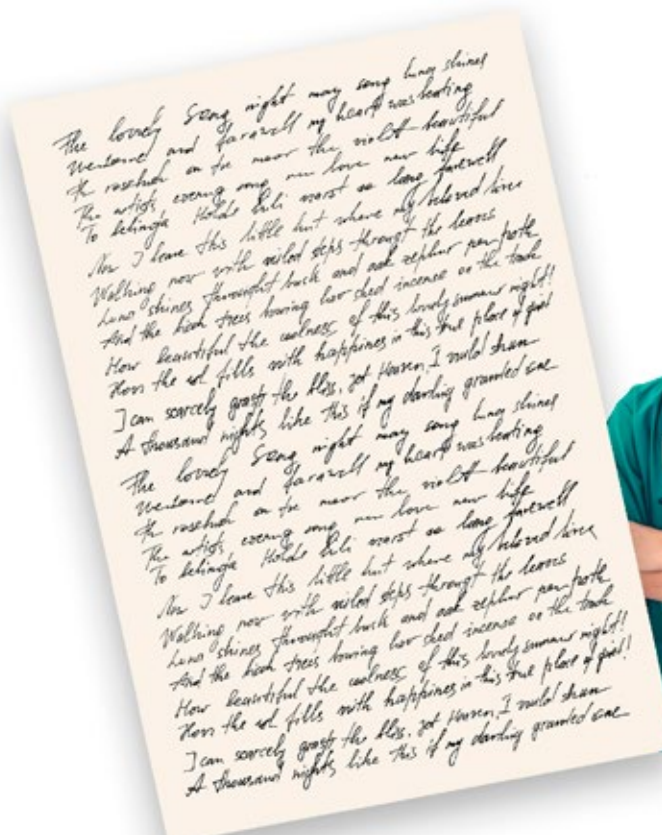 The lovely Song night may song Luna shines
and farawell my heart was beating
rosebud on the moor the violet beautiful
The artists evening song new love new life
To belinda Holde Lili long farewell
Now I leave this little hut where my beloved lives
Walking now with veiled steps through the leaves
Luna shines throught bush and oak zephur per path
And the birch trees bowing low shed incense on the track
How beautiful the coolness of this lovely summer night!
How the soul fills with happiness in this true place of quiet
I can scarcely grasp the bliss, yet Heaven, I would shun
A thousand nights like this if my darling granted one
The lovely Song night may song Luna shines
and farawell my heart was beating
rosebud on the moor the violet beautiful
The artists evening song new love new life
To belinda Holde Lili long farewell
Now I leave this little hut where my beloved lives
Walking now with veiled steps throught the leaves
Luna shines throught bush and oak zephur per path
And the birch trees bowing low shed incense on the track
How beautiful the coolness of this lovely summer night!
How the soul fills with happiness in this true place of quiet!
I can scarcely grasp the bliss, yet Heaven, I would shun
A thousand nights like this if my darling granted one